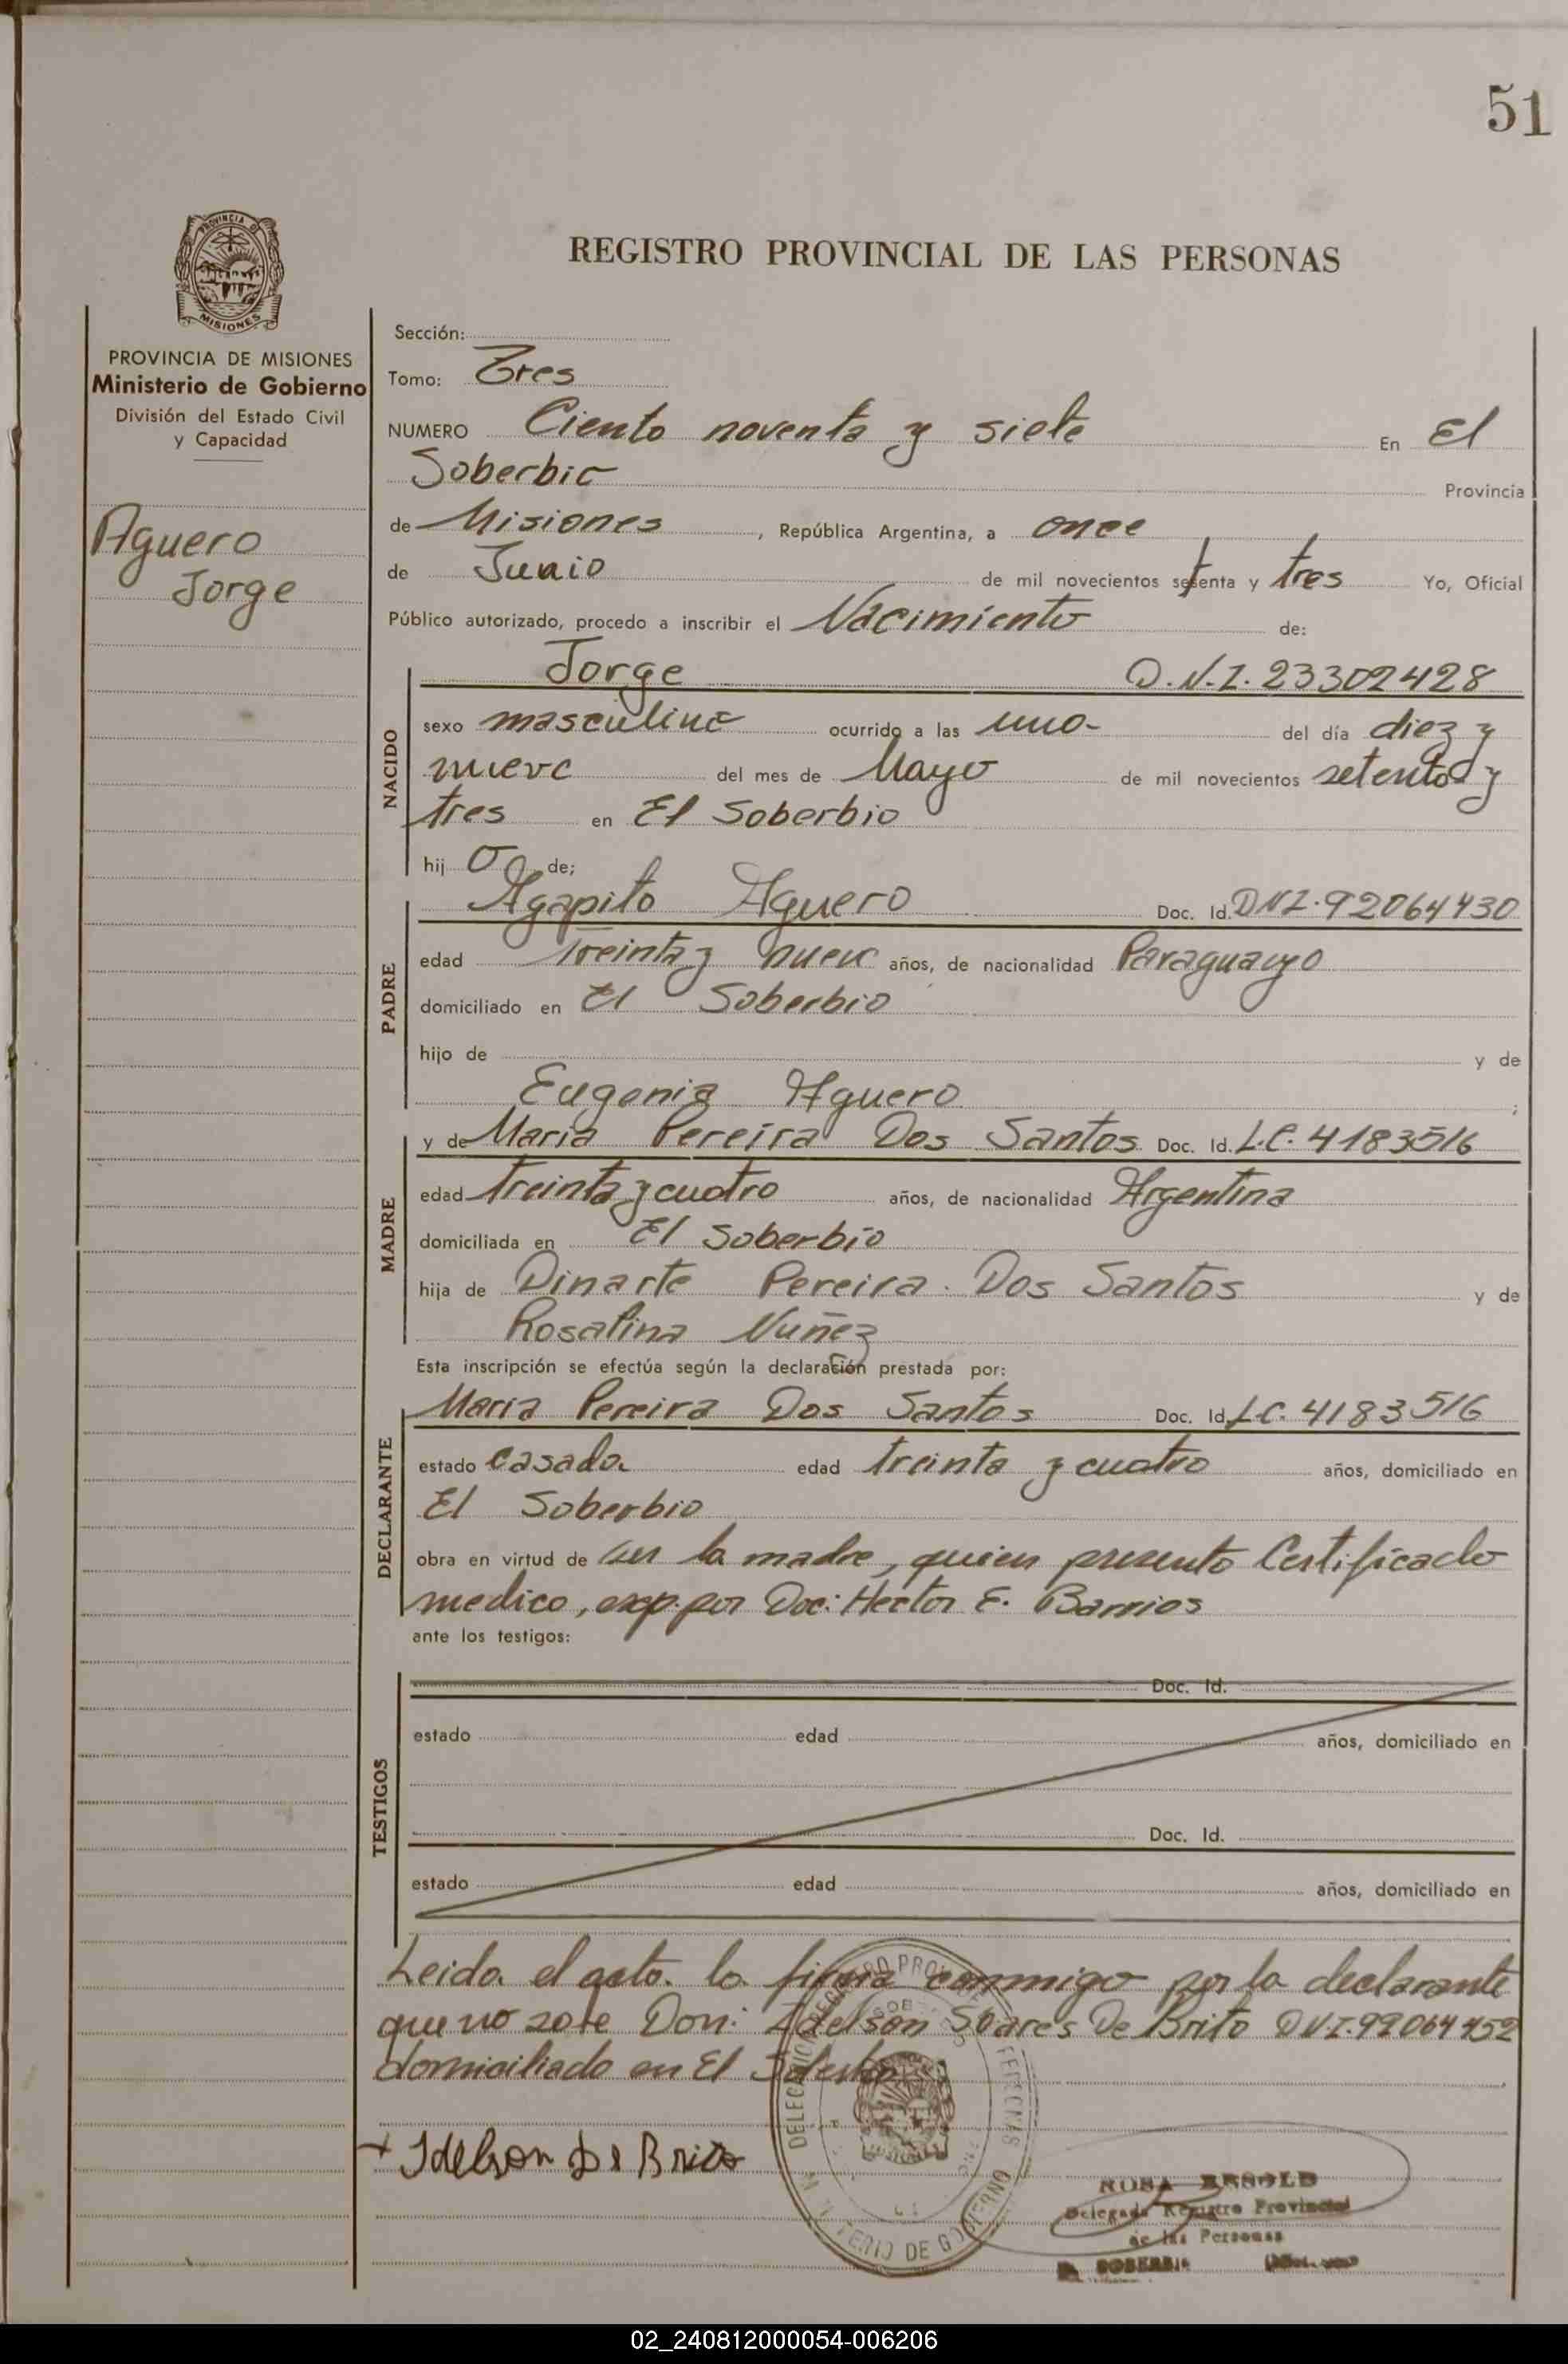 51
PROVINCIA DE
MISIONES
REGISTRO PROVINCIAL DE LAS PERSONAS
PROVINCIA DE MISIONES
Ministerio de Gobierno
División del Estado Civil
y Capacidad
Aguero
Jorge
Sección:
Tomo: Tres
NUMERO Ciento noventa y siete En El
Soberbio Provincia
de Misiones, República Argentina, a once
de Junio de mil novecientos setenta y tres Yo, Oficial
Público autorizado, procedo a inscribir el Nacimiento de:
NACIDO
Jorge D.N.I. 23302428
sexo masculino ocurrido a las uno- del día diez y
nueve del mes de Mayo de mil novecientos setenta y
tres en El Soberbio
hij o de;
PADRE
Agapito Aguero Doc. Id. DNI. 92064430
edad Treinta y nueve años, de nacionalidad Paraguayo
domiciliado en El Soberbio
hijo de y de
Eugenia Aguero ;
MADRE
y de Maria Pereira Dos Santos Doc. Id. L.C. 4183516
edad treinta y cuatro años, de nacionalidad Argentina
domiciliada en El Soberbio
hija de Dinarte Pereira Dos Santos y de
Rosalina Nuñez
Esta inscripción se efectúa según la declaración prestada por:
DECLARANTE
Maria Pereira Dos Santos Doc. Id. L.C. 4183516
estado casada edad treinta y cuatro años, domiciliado en
El Soberbio
obra en virtud de ser la madre, quien presento Certificado
medico, exp. por Doc: Hector E. Barrios
ante los testigos:
TESTIGOS
Doc. Id.
estado edad años, domiciliado en
Doc. Id.
estado edad años, domiciliado en
Leida el acta. la firma conmigo por la declarante
que no sabe Don: Idelson Soares De Brito DNI. 92064452
domiciliado en El Soberbio
Idelson De Brito
DE GOBIERNO
ROSA
Delegada Registro Provincial
de las Personas
SOBERBIO
02_240812000054-006206